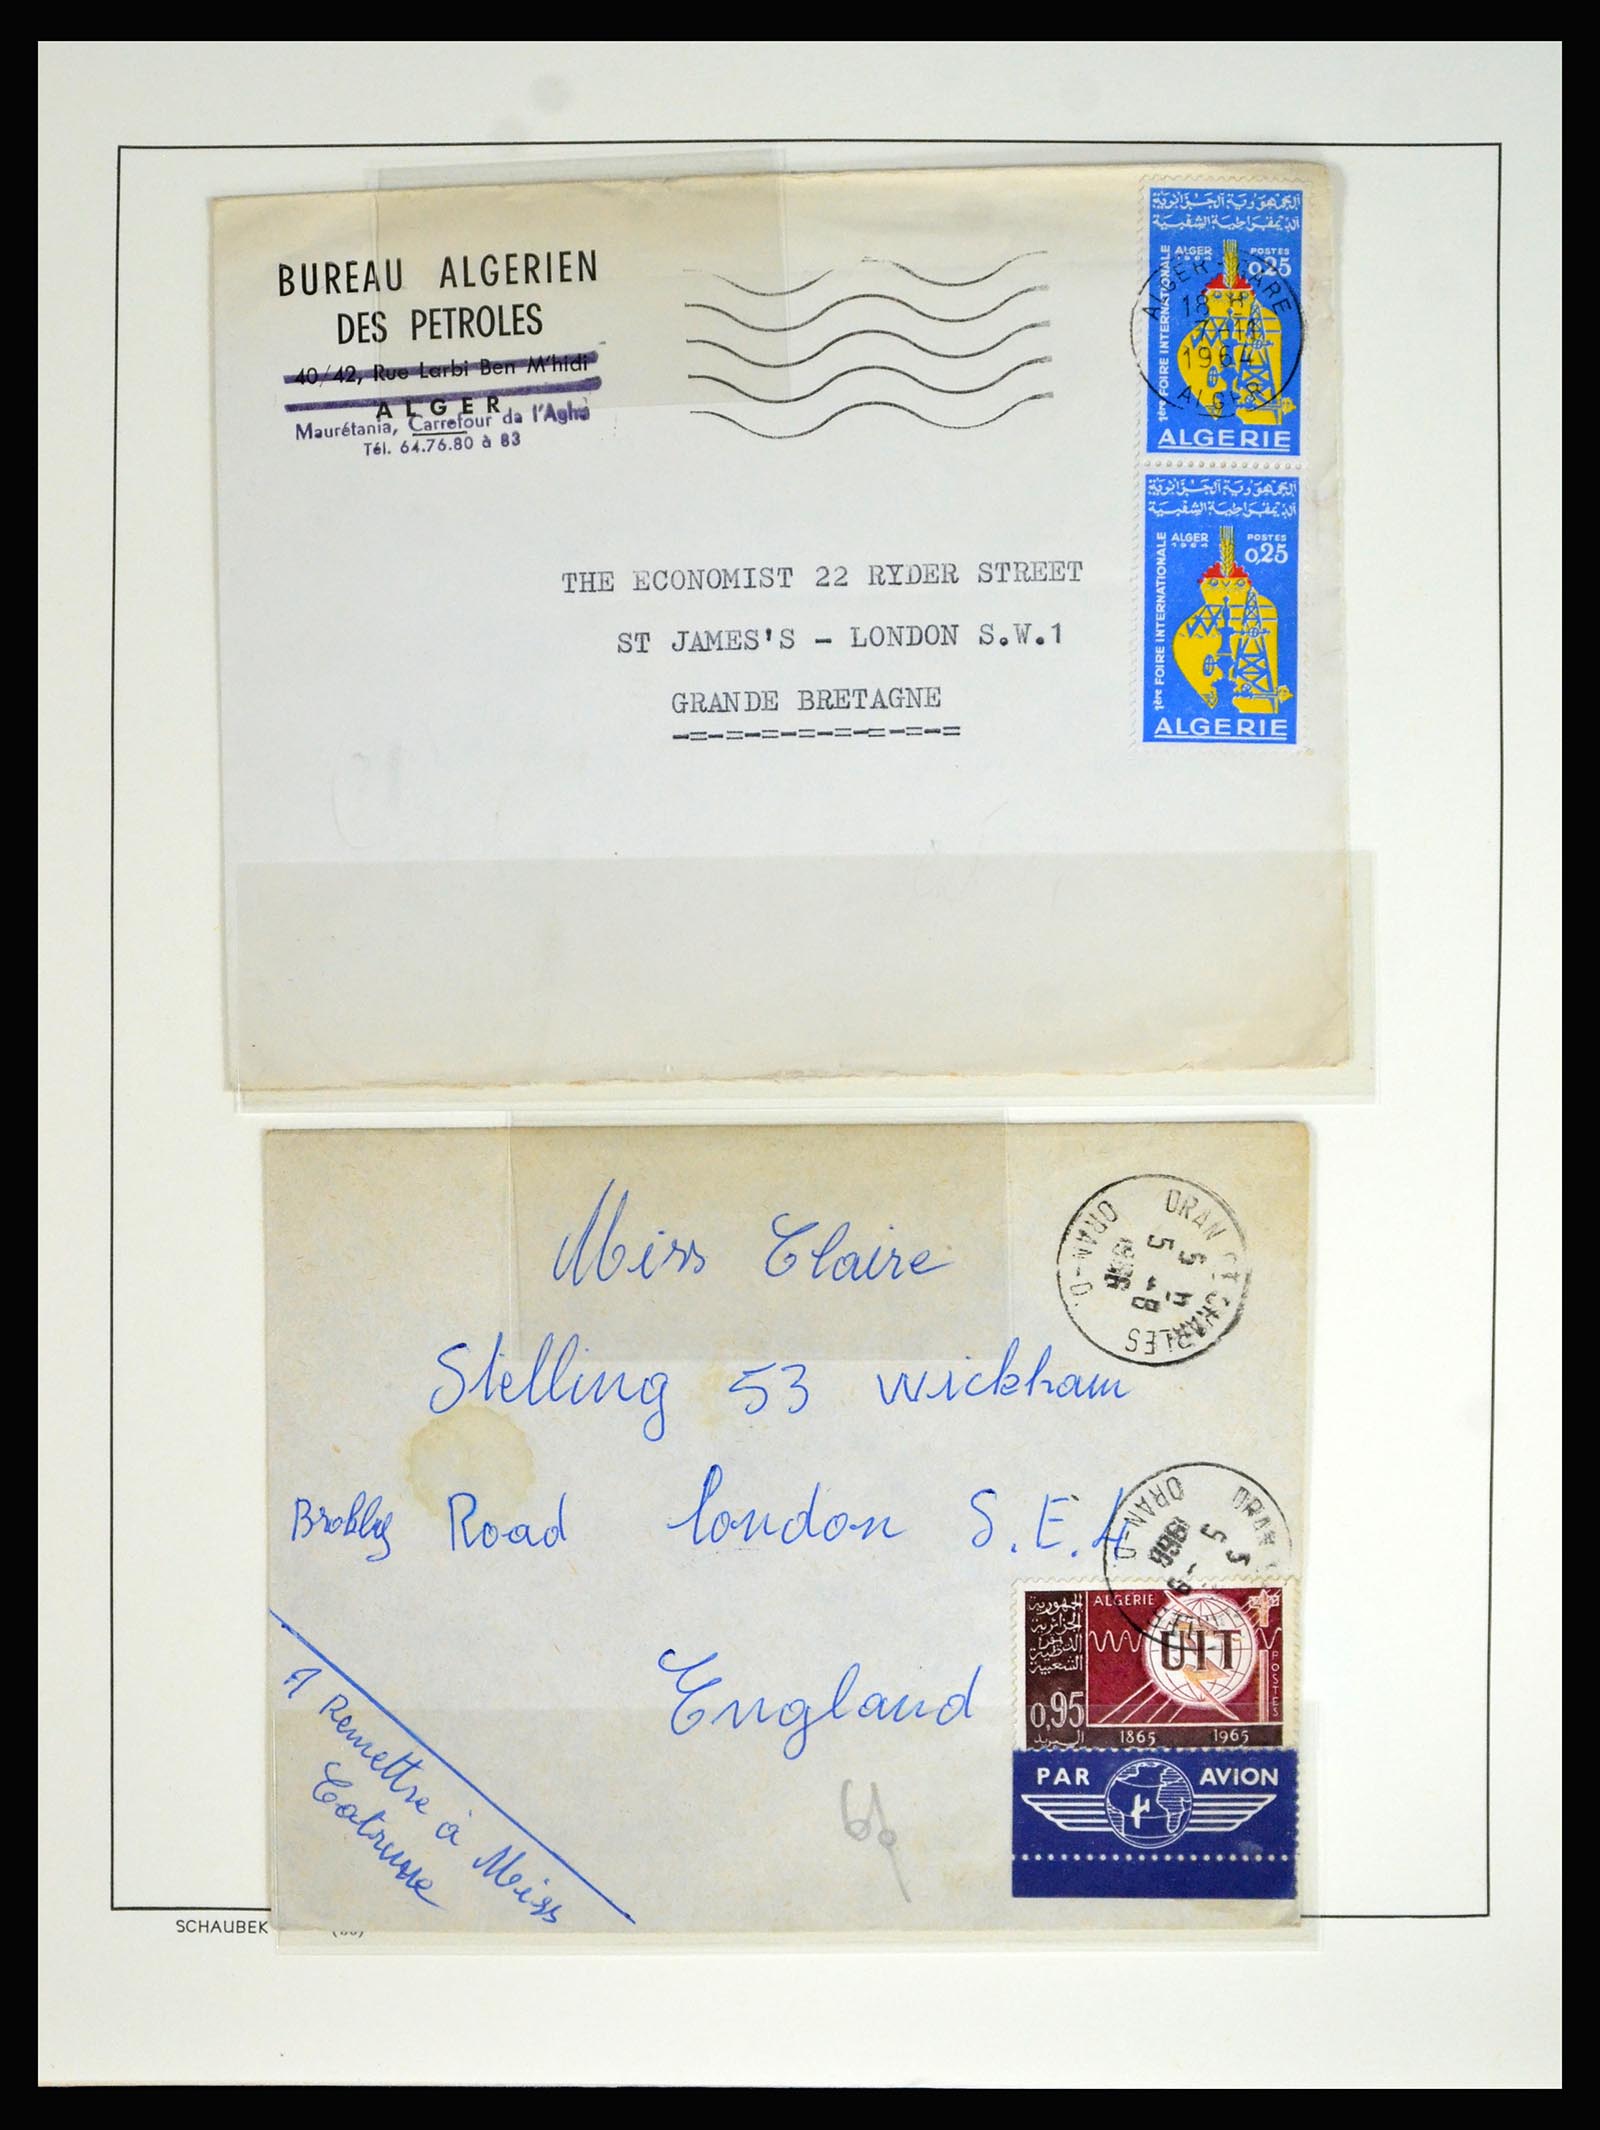 BUREAU ALGERIEN
DES PETROLES
40/42, Rue Larbi Ben M'hidi
ALGER
Maurétania, Carrefour da l'Agha
Tél. 64.76.80 à 83
الجمهورية الجزائرية
الديمقراطية الشعبية
ALGER
1964
POSTES
0,25
1ère FOIRE INTERNATIONALE
ALGERIE
ALGER-GARE
18 H
1964
ALGER
الجمهورية الجزائرية
الديمقراطية الشعبية
ALGER
1964
POSTES
0,25
1ère FOIRE INTERNATIONALE
ALGERIE
THE ECONOMIST 22 RYDER STREET
ST JAMES'S - LONDON S.W.1
GRANDE BRETAGNE
-=-=-=-=-=-=-=-=
ORAN ST CHARLES
ORAN-O
1966
Miss Claire
Stelling 53 Wickham
Road London S.E.4
England
ORAN
ORAN-O
1966
الجمهورية
الجزائرية
الشعبية
ALGERIE
UIT
POSTES
0,95
البريد
1865 1965
PAR AVION
A Remettre à Miss
69
SCHAUBEK